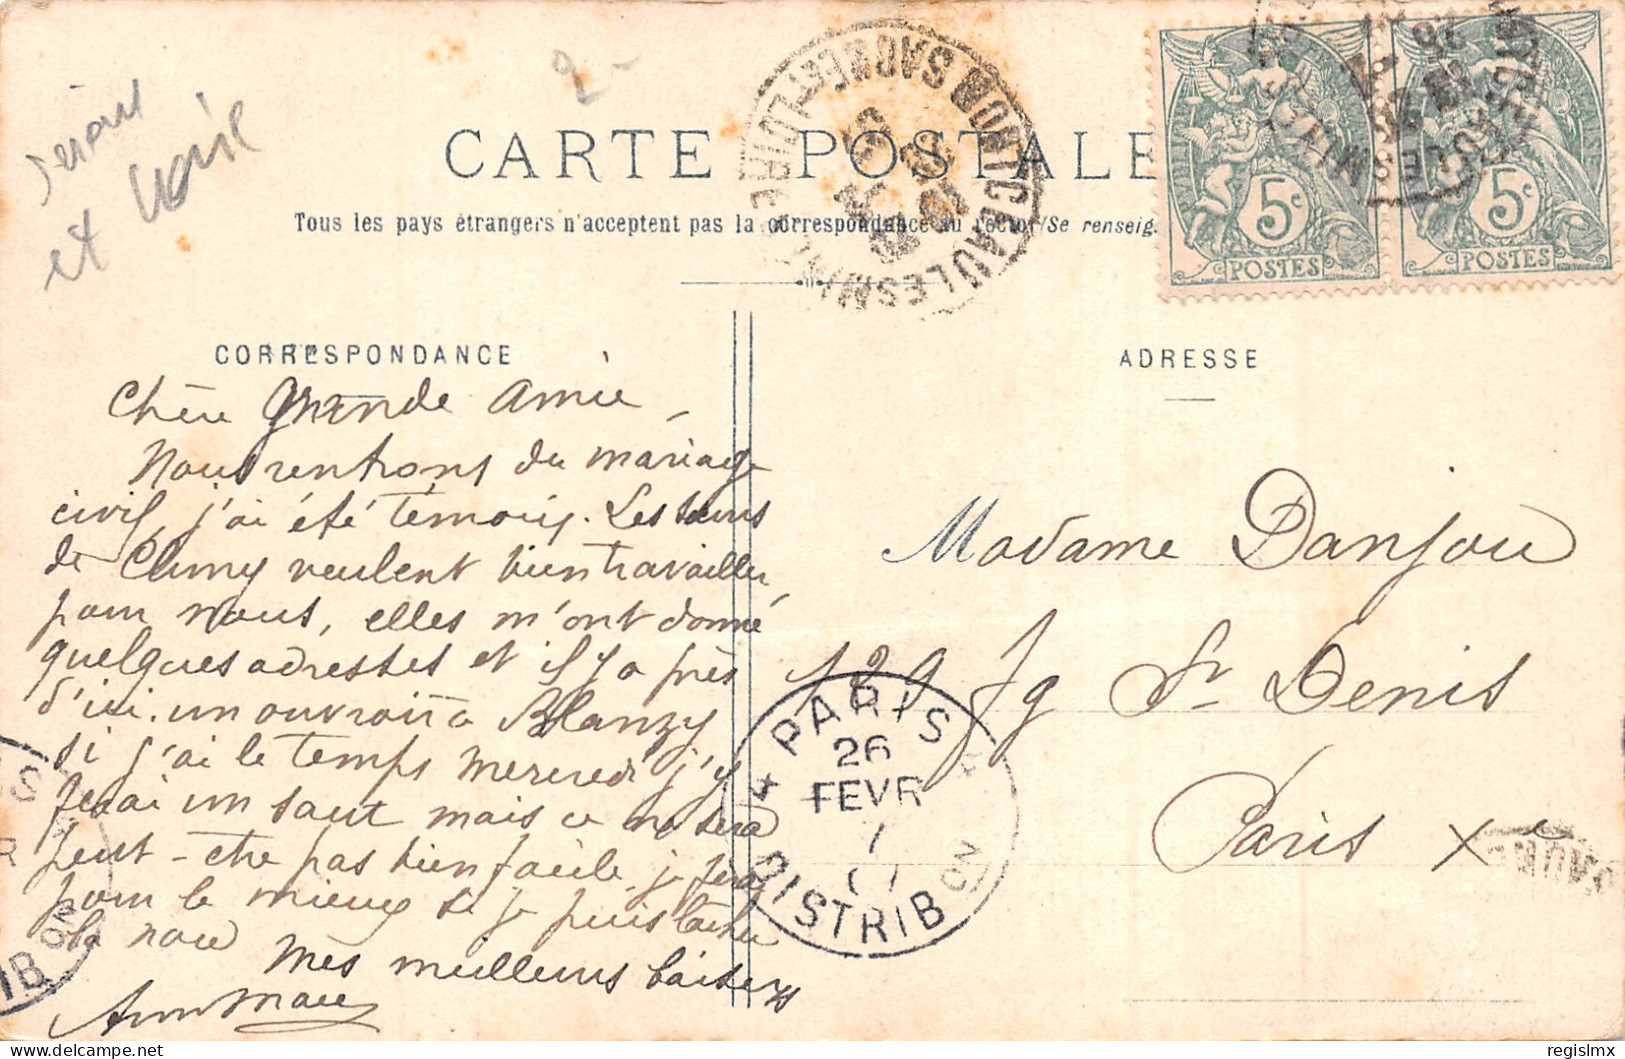 2-
et
CARTE POSTALE
Tous les pays étrangers n'acceptent pas la correspondance au recto (Se renseig
MONTCEAU LES MINES
SAONE ET LOIRE
5c
POSTES
5c
POSTES
CORRESPONDANCE
Chère Grande Amie
Nous rentrons du mariage
civil, j'ai été témoin. Les sœurs
de Cluny veulent bien travailler
pour nous, elles m'ont donné
quelques adresses et il y a près
d'ici un ouvroir à Blanzy
si j'ai le temps Mercredi j'y
ferai un saut mais ce ne sera
peut-être pas bien facile je ferai
pour le mieux si je puis lâcher
la noce
Mes meilleurs baisers
ADRESSE
Madame Danjou
129 fg St Denis
Paris Xe
PARIS
26
FEVR
DISTRIBUTION
regislmx